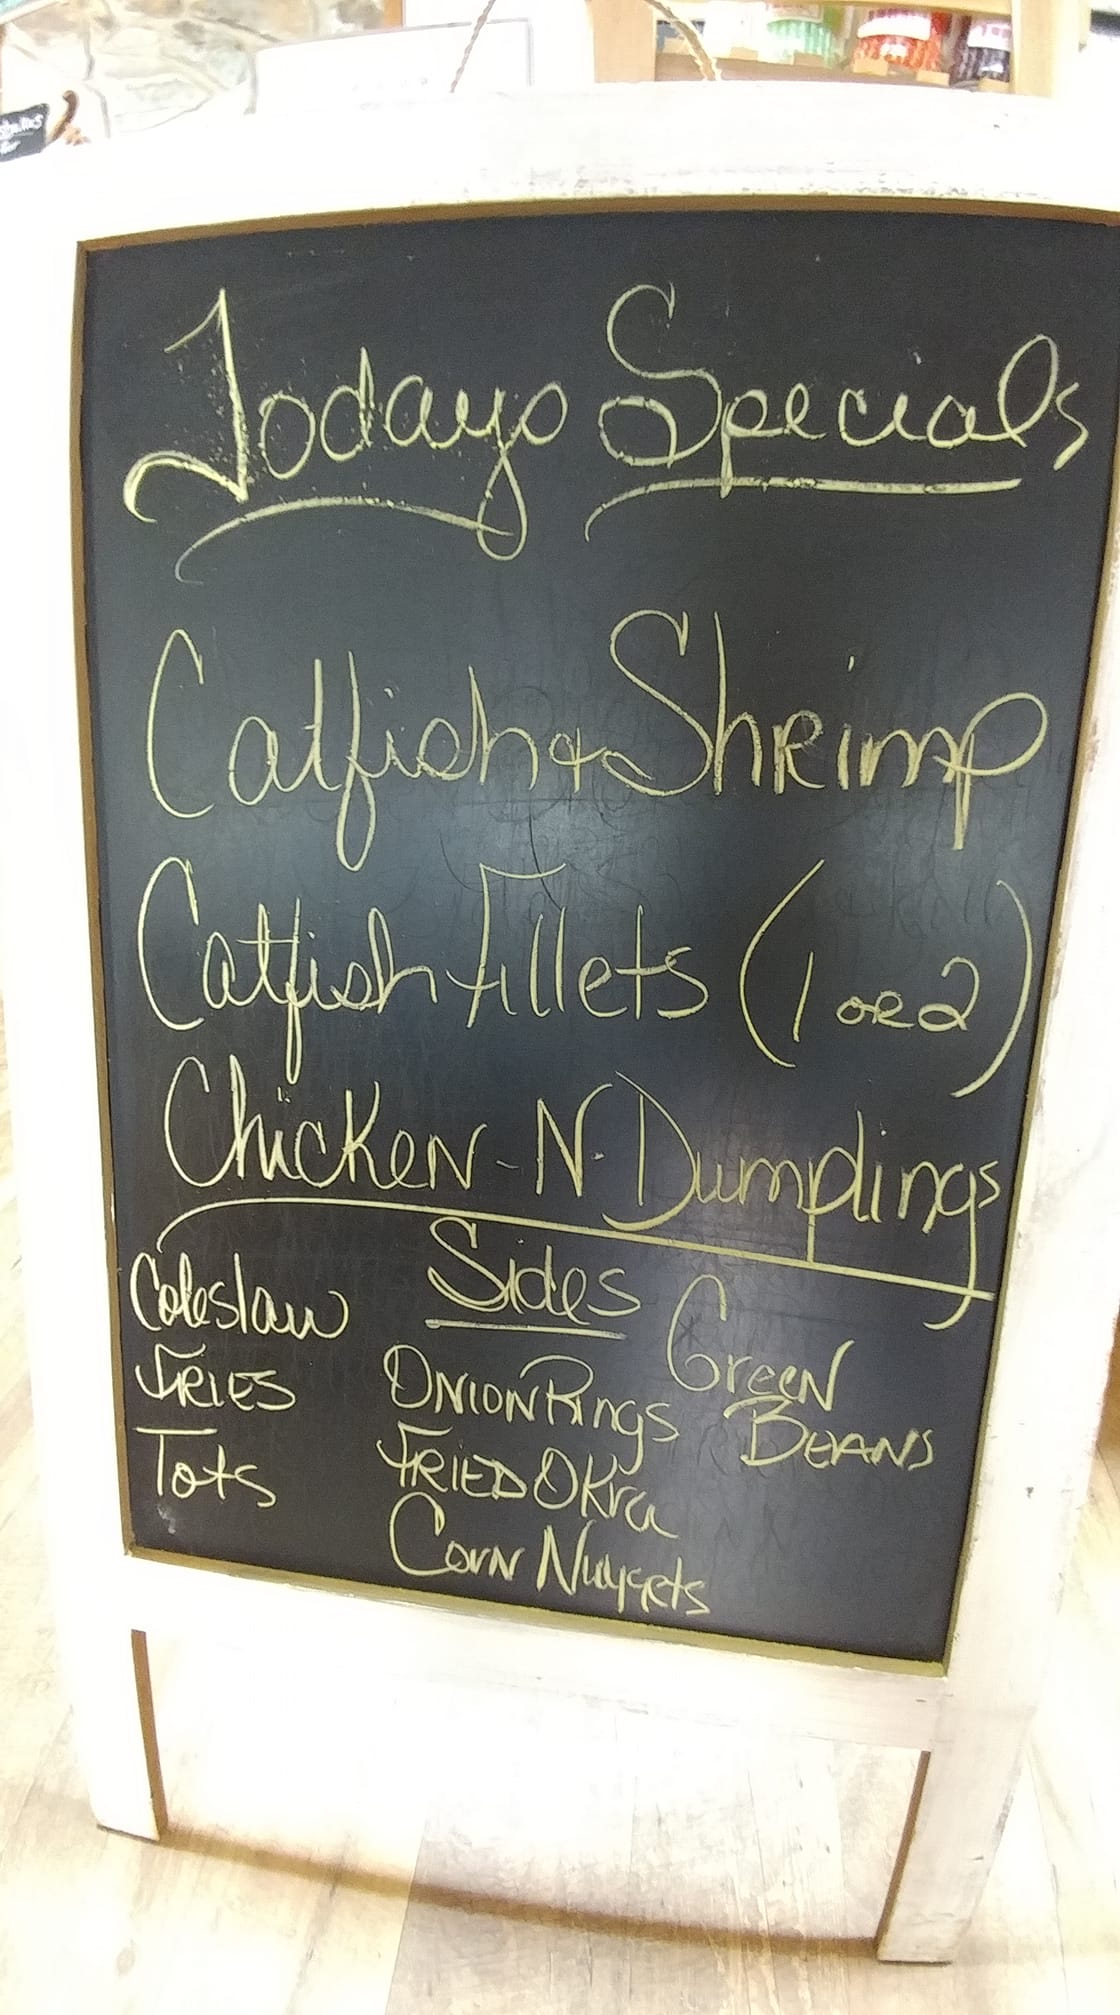 Todays Specials
Catfish & Shrimp
Catfish Fillets (1 or 2)
Chicken-N-Dumplings
Sides
Coleslaw
Fries
Tots
Onion Rings
Fried Okra
Corn Nuggets
* Green
Beans